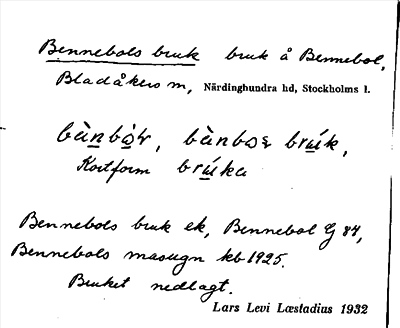 Bennebols bruk bruk å Bennebol,
Bladåkers sn, Närdinghundra hd, Stockholms l.
bènbòɫr, bànbos brúk,
Kortform brúka
Bennebols bruk ek, Bennebol G 84,
Bennebols masugn kb 1925.
Bruket nedlagt.
Lars Levi Læstadius 1932